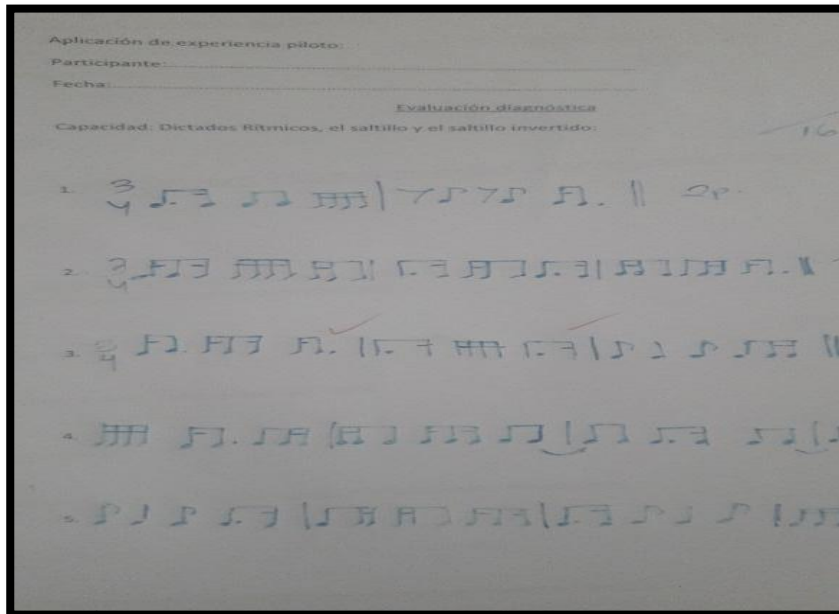 Aplicación de experiencia piloto:
Participante:
Fecha:
Evaluación diagnóstica
Capacidad: Dictados Rítmicos, el saltillo y el saltillo invertido:
16
1. 3/4 2p.
2. 3/4
3. 3/4
4.
5.